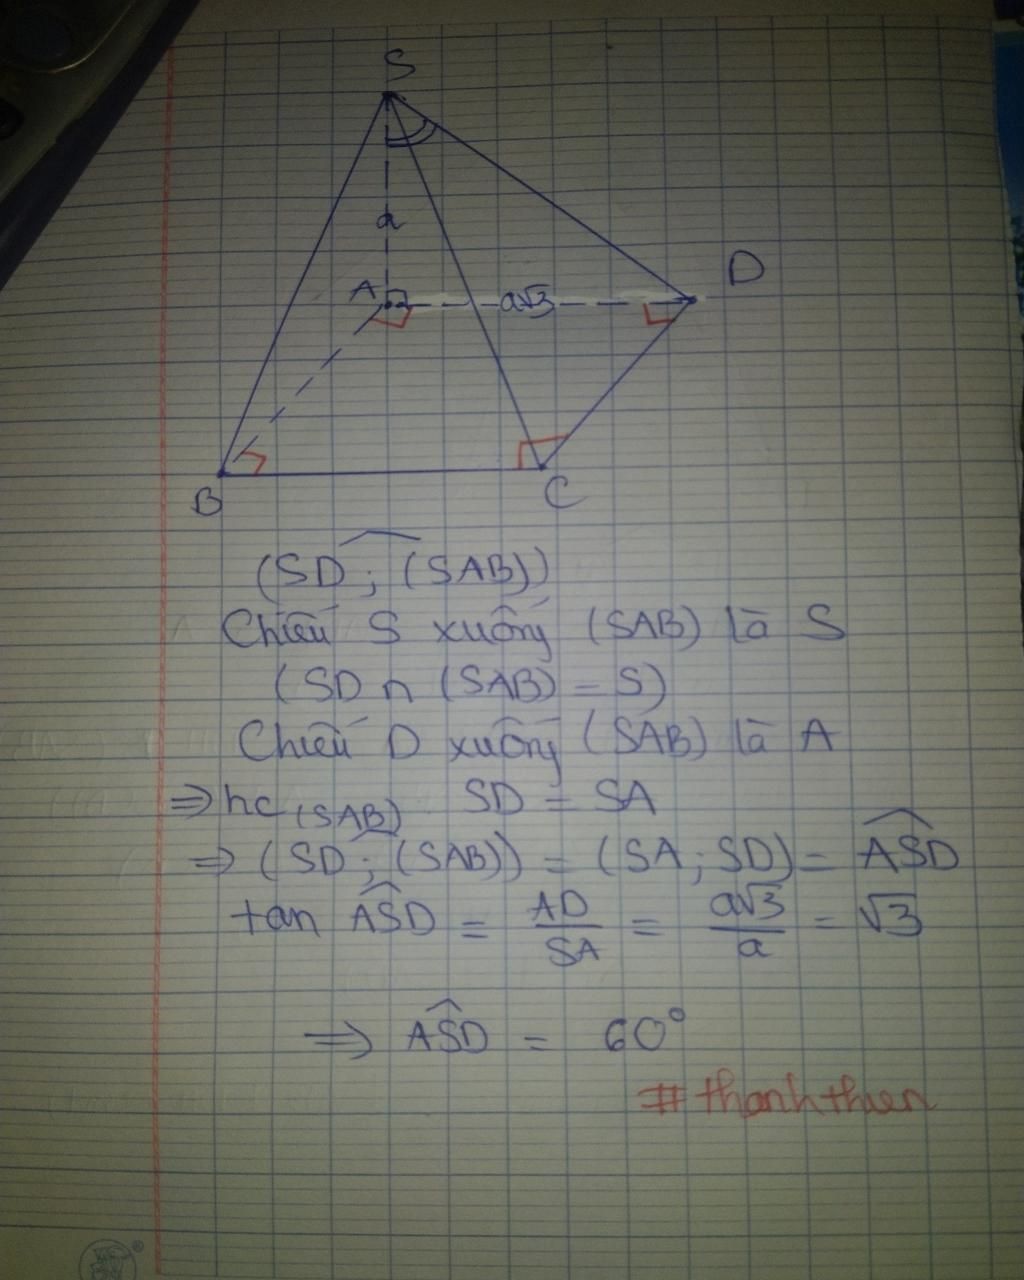 S
a
A
a√3
D
B
C
(SD; (SAB))
Chiếu S xuống (SAB) là S
(SD ∩ (SAB) = S)
Chiếu D xuống (SAB) là A
⇒ hc(SAB) SD = SA
⇒ (SD; (SAB)) = (SA; SD) = ASD
tan ASD = AD/SA = a√3/a = √3
⇒ ASD = 60°
#thanhthien